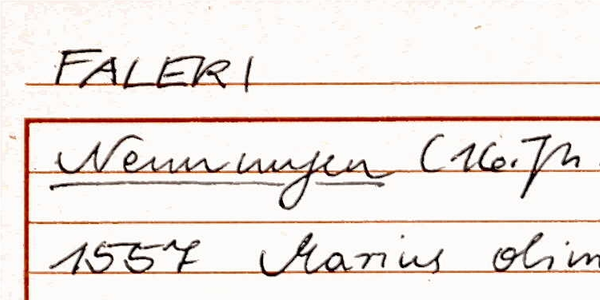 FALERI
Nenningen (16. Jh.
1557 Marius olim